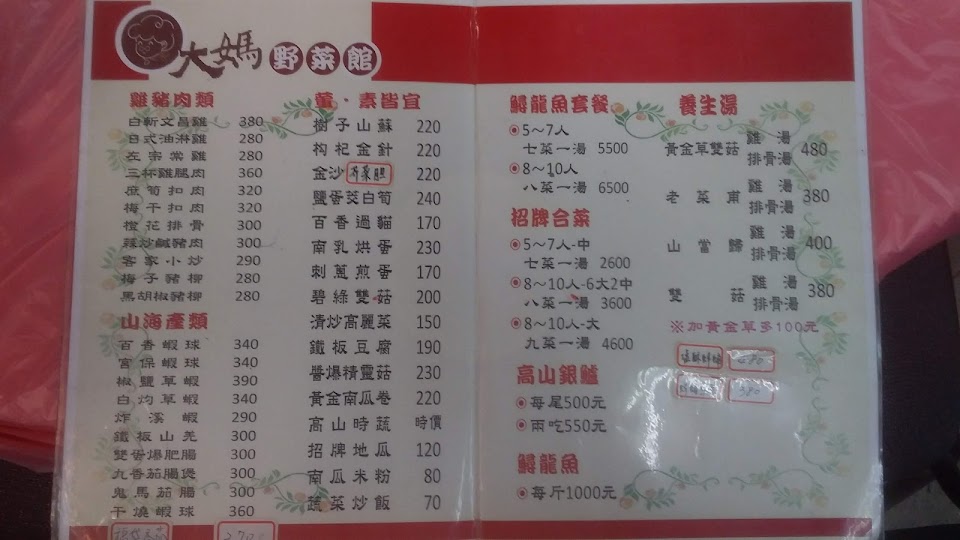 大媽野菜館
雞豬肉類
白斬文昌雞 380
日式油淋雞 280
左宗棠雞 280
三杯雞腿肉 360
庶筍扣肉 320
梅干扣肉 320
橙花排骨 300
蒜炒鹹豬肉 300
客家小炒 290
梅子豬柳 280
黑胡椒豬柳 280
山海產類
百香蝦球 340
宮保蝦球 340
椒鹽草蝦 390
白灼草蝦 340
炸溪蝦 290
鐵板山羌 300
雙香爆肥腸 300
九香茄腸煲 300
鬼馬茄腸 300
干燒蝦球 360
葷·素皆宜
樹子山蘇 220
枸杞金針 220
金沙 220
鹽蛋茭白筍 240
百香過貓 170
南乳烘蛋 230
刺蔥煎蛋 170
碧綠雙菇 200
清炒高麗菜 150
鐵板豆腐 190
醬爆精靈菇 230
黃金南瓜卷 220
高山時蔬 時價
招牌地瓜 120
南瓜米粉 80
蔬菜炒飯 70
鱘龍魚套餐
5~7人
七菜一湯 5500
8~10人
八菜一湯 6500
招牌合菜
5~7人-中
七菜一湯 2600
8~10人-6大2中
八菜一湯 3600
8~10人-大
九菜一湯 4600
高山銀鱸
每尾500元
兩吃550元
鱘龍魚
每斤1000元
養生湯
黃金草雙菇 雞湯 排骨湯 480
老菜甫 雞湯 排骨湯 380
山當歸 雞湯 排骨湯 400
雙菇 雞湯 排骨湯 380
※加黃金草多100元